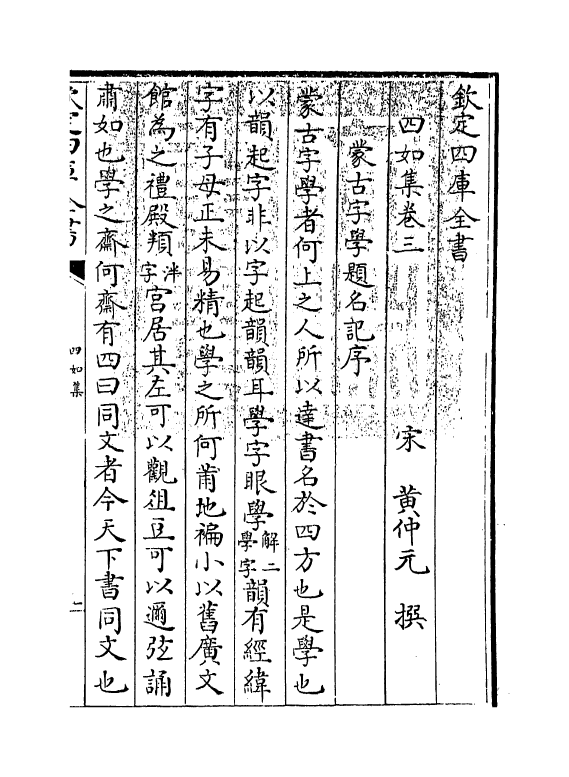 欽定四庫全書
四如集卷三
宋 黄仲元 撰
蒙古字學題名記序
蒙古字學者何上之人所以達書名於四方也是學也
以韻起字非以字起韻韻耳學字眼學解二學字韻有經緯
字有子母正未易精也學之所何莆地褊小以舊廣文
館為之禮殿頖泮字宮居其左可以觀俎豆可以邇弦誦
肅如也學之齋何齋有四曰同文者今天下書同文也
四如集
一